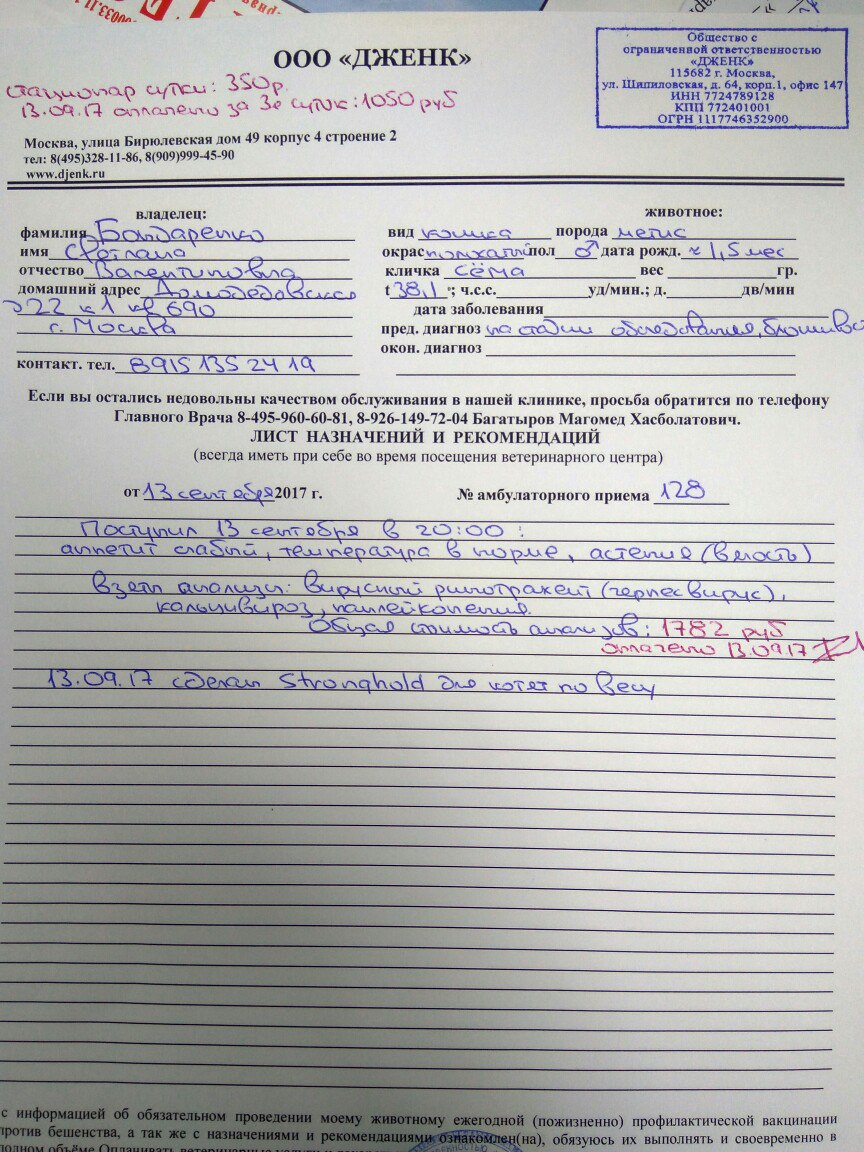 ООО «ДЖЕНК»
стационар сутки: 350 р.
13.09.17 оплачено за 3е суток: 1050 руб
Общество с
ограниченной ответственностью
«ДЖЕНК»
115682 г. Москва,
ул. Шипиловская, д. 64, корп.1, офис 147
ИНН 7724789128
КПП 772401001
ОГРН 1117746352900
Москва, улица Бирюлевская дом 49 корпус 4 строение 2
тел: 8(495)328-11-86, 8(909)999-45-90
www.djenk.ru
владелец:
фамилия Бондаренко
имя Светлана
отчество Валентиновна
домашний адрес Домодедовская
д 22 к 1 кв 690
г. Москва
контакт. тел. 8915 135 24 19
животное:
вид кошка порода метис
окрас пол ♂ дата рожд. ≈ 1,5 мес
кличка Сёма вес гр.
t 38,1 °; ч.с.с. уд/мин.; д. дв/мин
дата заболевания
пред. диагноз на стадии обследования,
окон. диагноз
Если вы остались недовольны качеством обслуживания в нашей клинике, просьба обратится по телефону
Главного Врача 8-495-960-60-81, 8-926-149-72-04 Багатыров Магомед Хасболатович.
ЛИСТ НАЗНАЧЕНИЙ И РЕКОМЕНДАЦИЙ
(всегда иметь при себе во время посещения ветеринарного центра)
от 13 сентября 2017 г. № амбулаторного приема 128
Поступил 13 сентября в 20:00 :
аппетит слабый, температура в норме, астения (вялость)
Взяты анализы: Вирусный ринотрахеит (герпесвирус),
кальцивироз, панлейкопения.
Общая стоимость анализов: 1782 руб
оплачено 13.09.17
13.09.17 сделан Stronghold для котят по весу
с информацией об обязательном проведении моему животному ежегодной (пожизненно) профилактической вакцинации
против бешенства, а так же с назначениями и рекомендациями ознакомлен(на), обязуюсь их выполнять и своевременно в